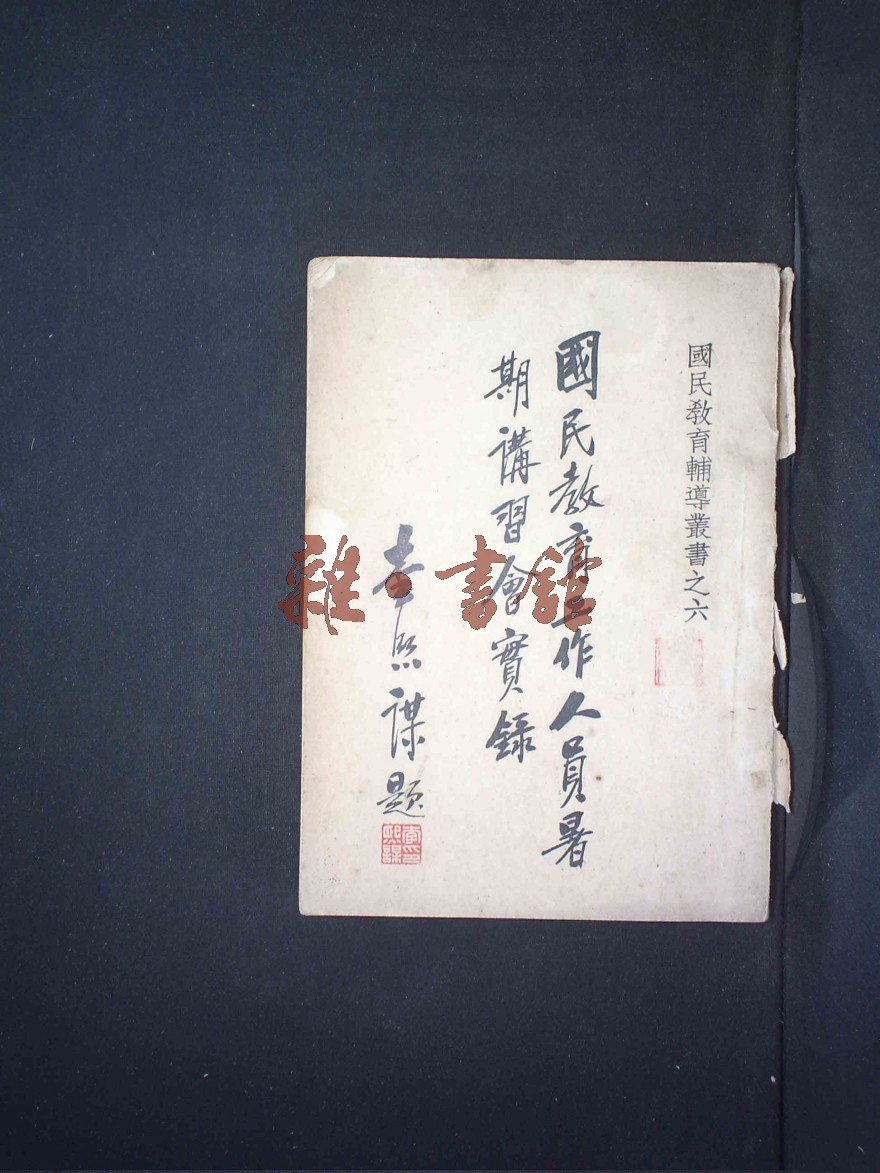 國民教育輔導叢書之六
國民教育工作人員暑
期講習會實錄
李熙謀題
李熙謀印
雜·書館